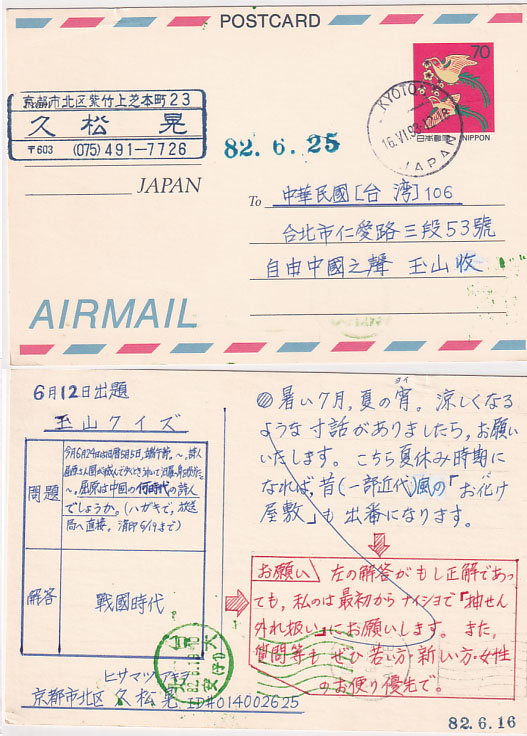 POSTCARD
京都市北区紫竹上芝本町23
久松晃
〒603 (075)491-7726
82.6.25
70
日本郵便 NIPPON
KYOTO
16.VI.93.12-18
JAPAN
JAPAN
To 中華民國[台湾]106
台北市仁愛路三段53號
自由中國之聲 玉山收
AIRMAIL
6月12日出題
玉山クイズ
問題
屈原は中国の何時代の詩人
でしょうか。(ハガキで,放送
局へ直接。消印6/19まで)
解答
戰國時代
ヒサマツ アキラ
京都市北区 久松晃 ID#014002625
◎暑い7月,夏の宵。涼しくなる
ヨイ
ような寸話がありましたら,お願い
いたします。こちら夏休み時期に
なれば,昔(一部近代)風の「お化け
屋敷」も出番になります。
お願い 左の解答がもし正解であっ
ても,私のは最初からナイショで「抽せん
外れ扱い」にお願いします。また,
質問等も ぜひ若い方・新しい方・女性
のお便り優先で。
82.6.16